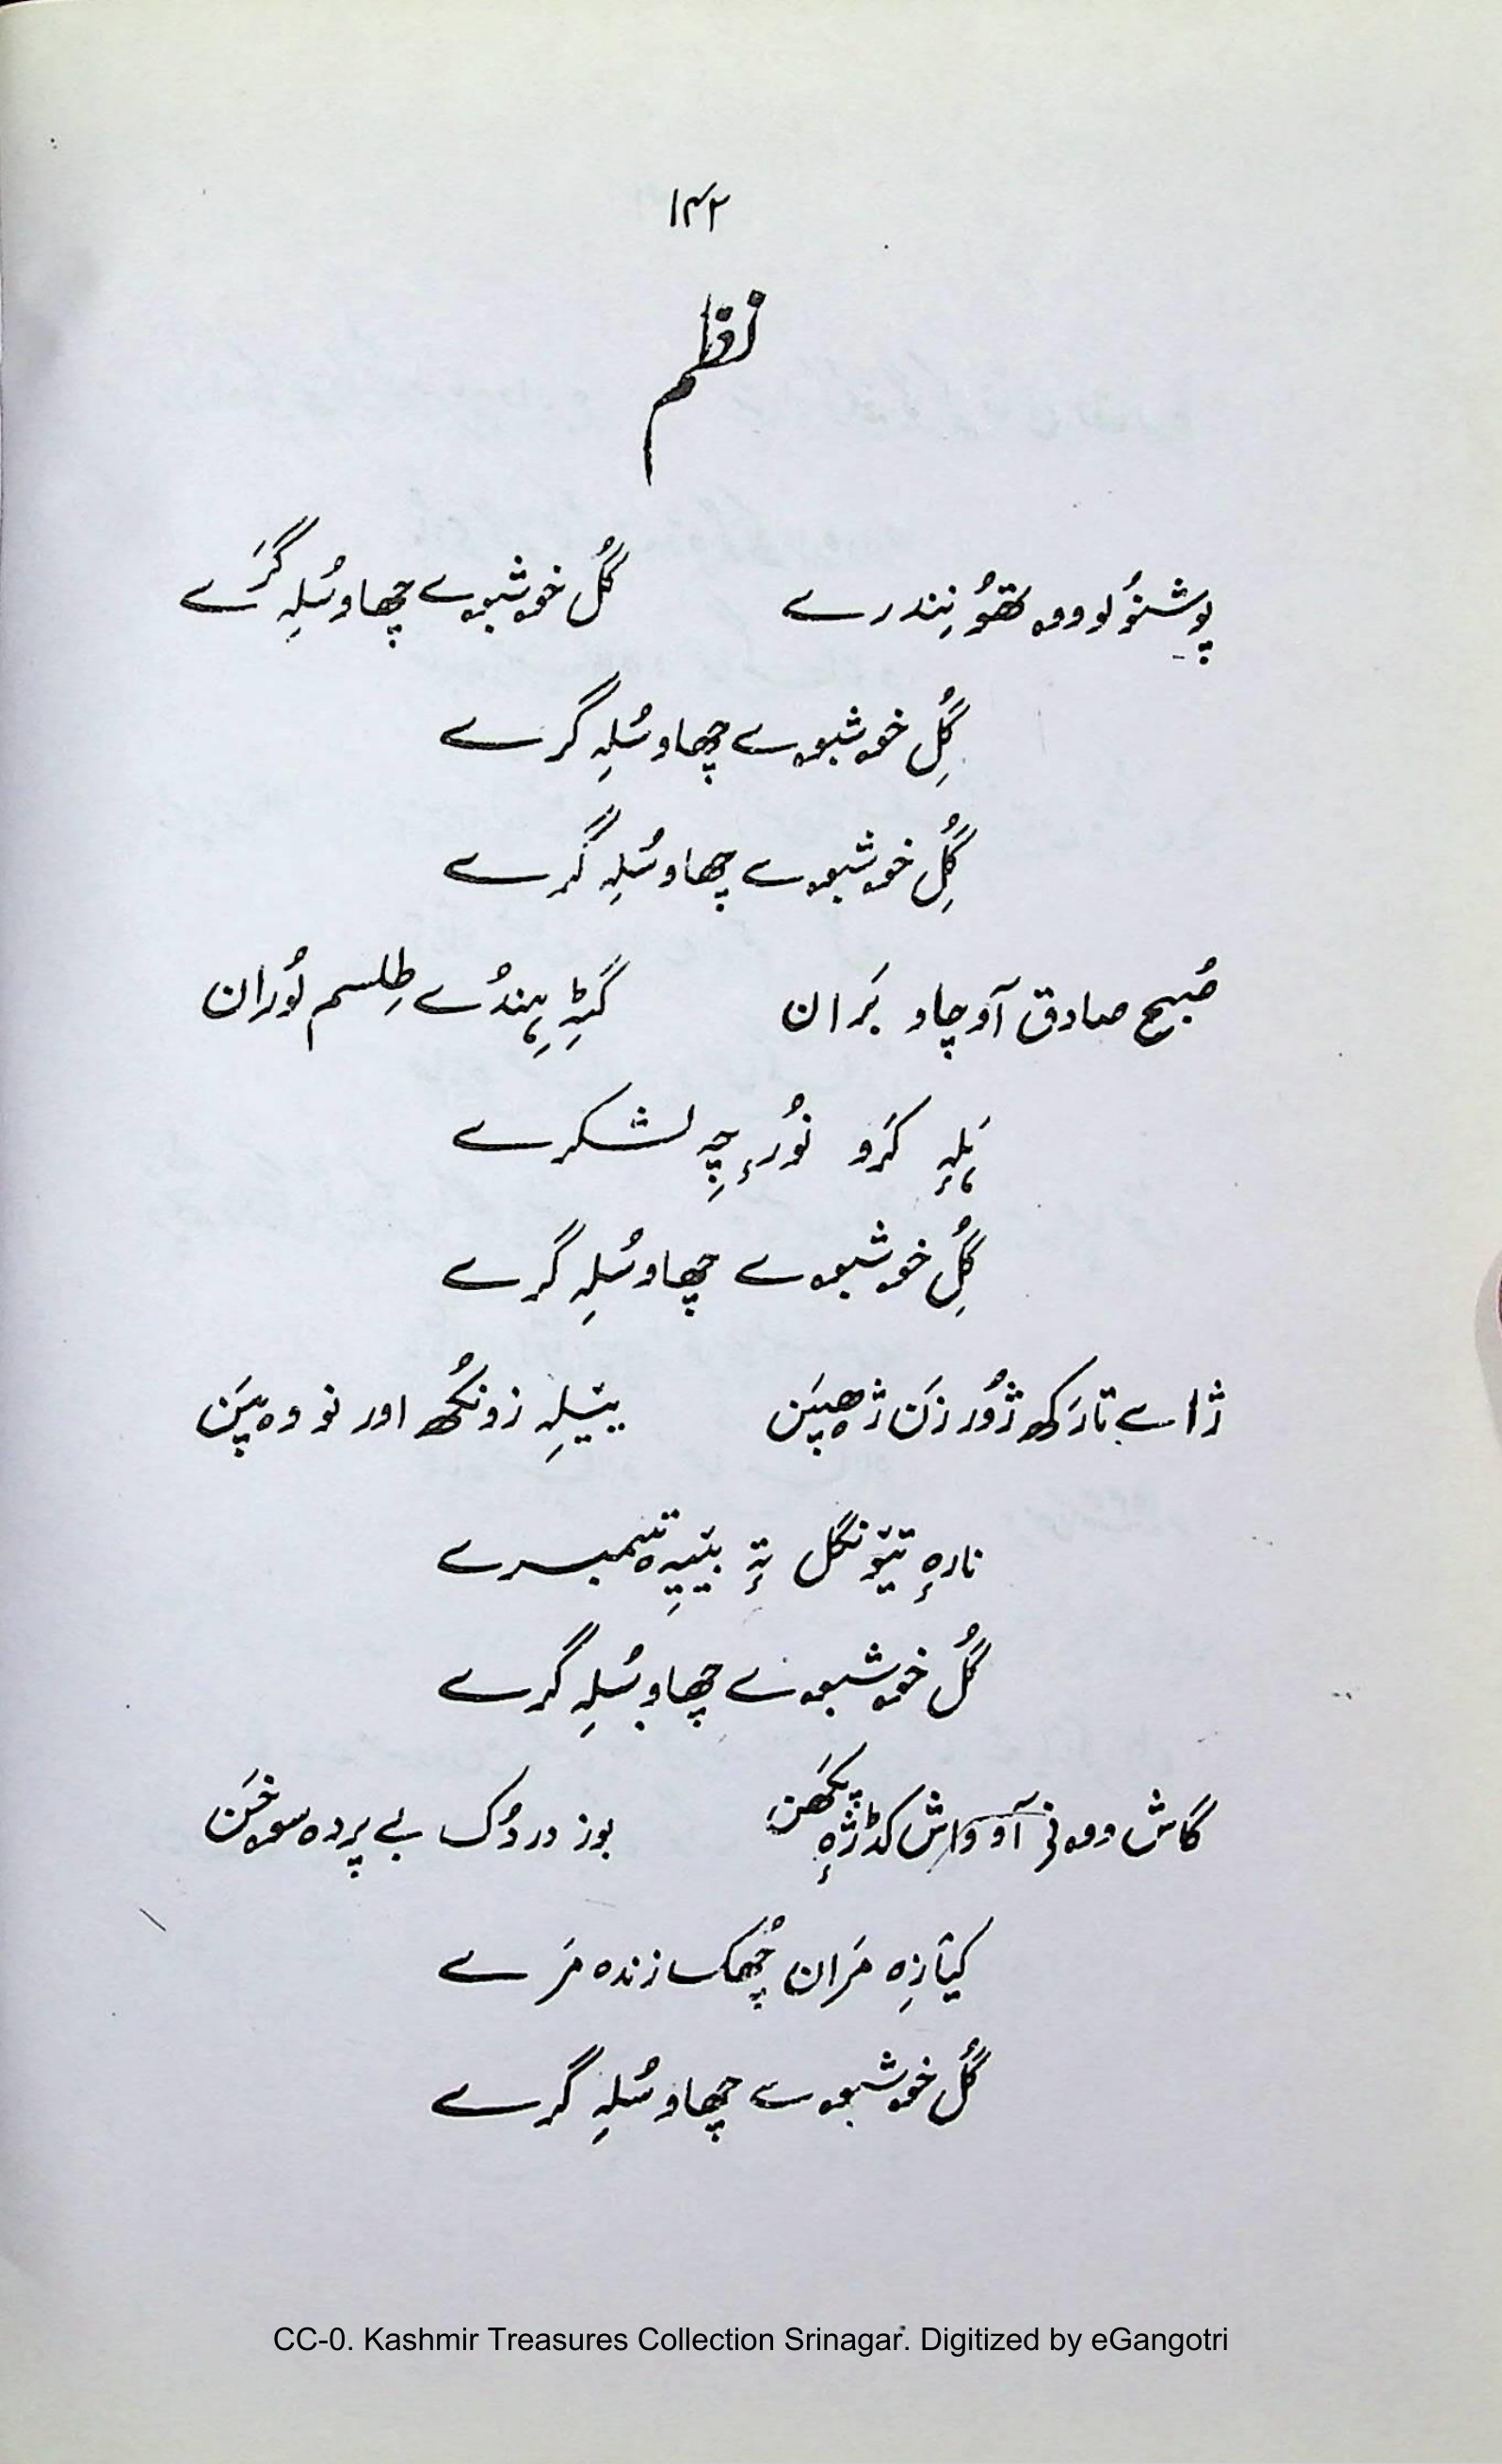 ۱۴۲
نظم
پوشنوٗلو ووتھوٗ نِندرے گُل خوشبوے چھاو سُلہِ گَرے
گُلِ خوشبوے چھاو سُلہِ گرے
گُلِ خوشبوے چھاو سُلہِ گرے
صُبح صادق آو چاو بَران گٹہِ ہِندُے طِلسم لوٗران
ہَلہٕ کَرو نوٗرٕچہِ لشکرے
گُلِ خوشبوے چھاو سُلہِ گرے
ژاے تارَکھ ژوٗر زَن ژھیپَن ییٚلہِ زونُکھ اور نو وہ پَین
نارہٕ تیوٚنگل تہٕ بیٚیہِ تیٚمبرے
گُل خوشبوے چھاو سُلہِ گرے
گاش وونی آو واش کڈ ژہٕ پکھَن بوز دردُک بے پردہ سوخَن
کیٛازِہ مَران چُھکھ زندہ مَرے
گُل خوشبوے چھاو سُلہِ گرے
CC-0. Kashmir Treasures Collection Srinagar. Digitized by eGangotri